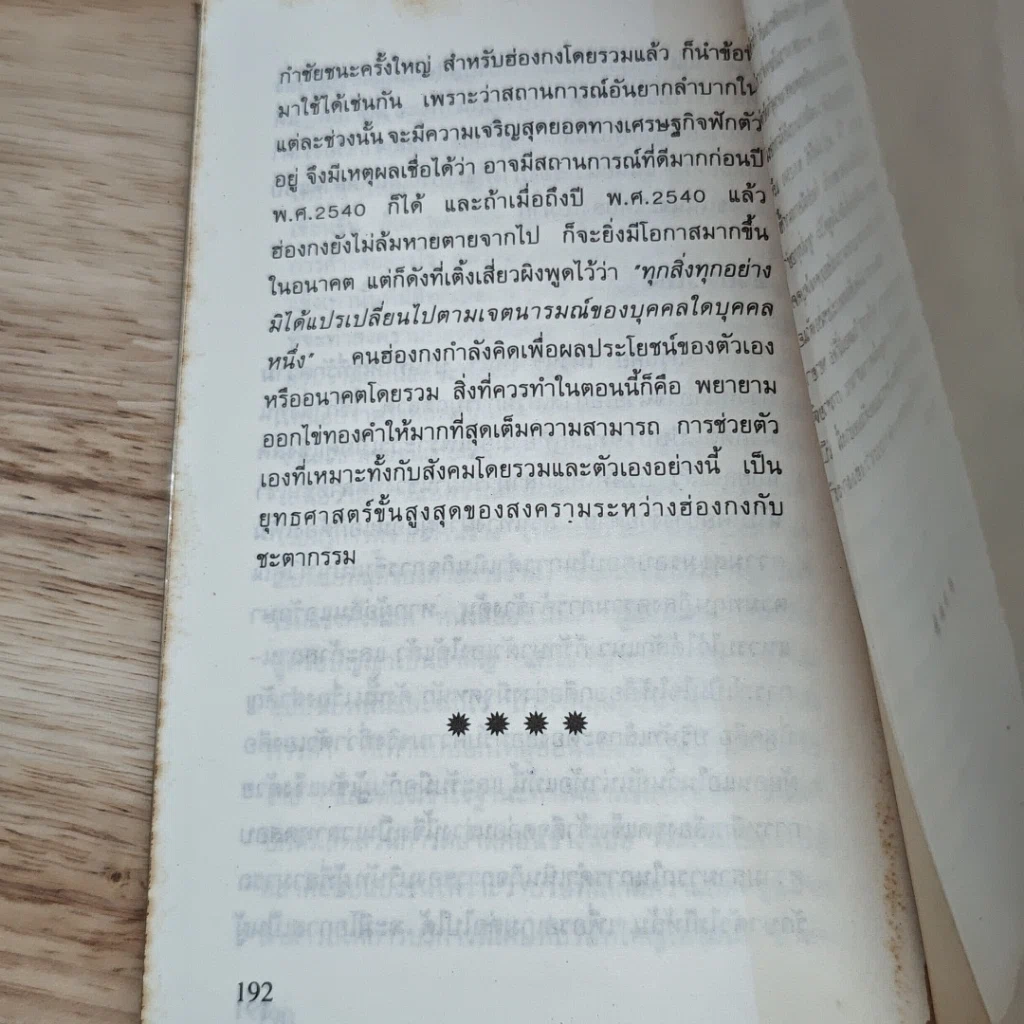 กำชัยชนะครั้งใหญ่ สำหรับฮ่องกงโดยรวมแล้ว ก็นำข้อ
มาใช้ได้เช่นกัน เพราะว่าสถานการณ์อันยากลำบากใน
แต่ละช่วงนั้น จะมีความเจริญสุดยอดทางเศรษฐกิจฟักตัว
อยู่ จึงมีเหตุผลเชื่อได้ว่า อาจมีสถานการณ์ที่ดีมากก่อนปี
พ.ศ.2540 ก็ได้ และถ้าเมื่อถึงปี พ.ศ.2540 แล้ว
ฮ่องกงยังไม่ล้มหายตายจากไป ก็จะยิ่งมีโอกาสมากขึ้น
ในอนาคต แต่ก็ดังที่เติ้งเสี่ยวผิงพูดไว้ว่า "ทุกสิ่งทุกอย่าง
มิได้แปรเปลี่ยนไปตามเจตนารมณ์ของบุคคลใดบุคคล
หนึ่ง" คนฮ่องกงกำลังคิดเพื่อผลประโยชน์ของตัวเอง
หรืออนาคตโดยรวม สิ่งที่ควรทำในตอนนี้ก็คือ พยายาม
ออกไข่ทองคำให้มากที่สุดเต็มความสามารถ การช่วยตัว
เองที่เหมาะทั้งกับสังคมโดยรวมและตัวเองอย่างนี้ เป็น
ยุทธศาสตร์ขั้นสูงสุดของสงครามระหว่างฮ่องกงกับ
ชะตากรรม
192